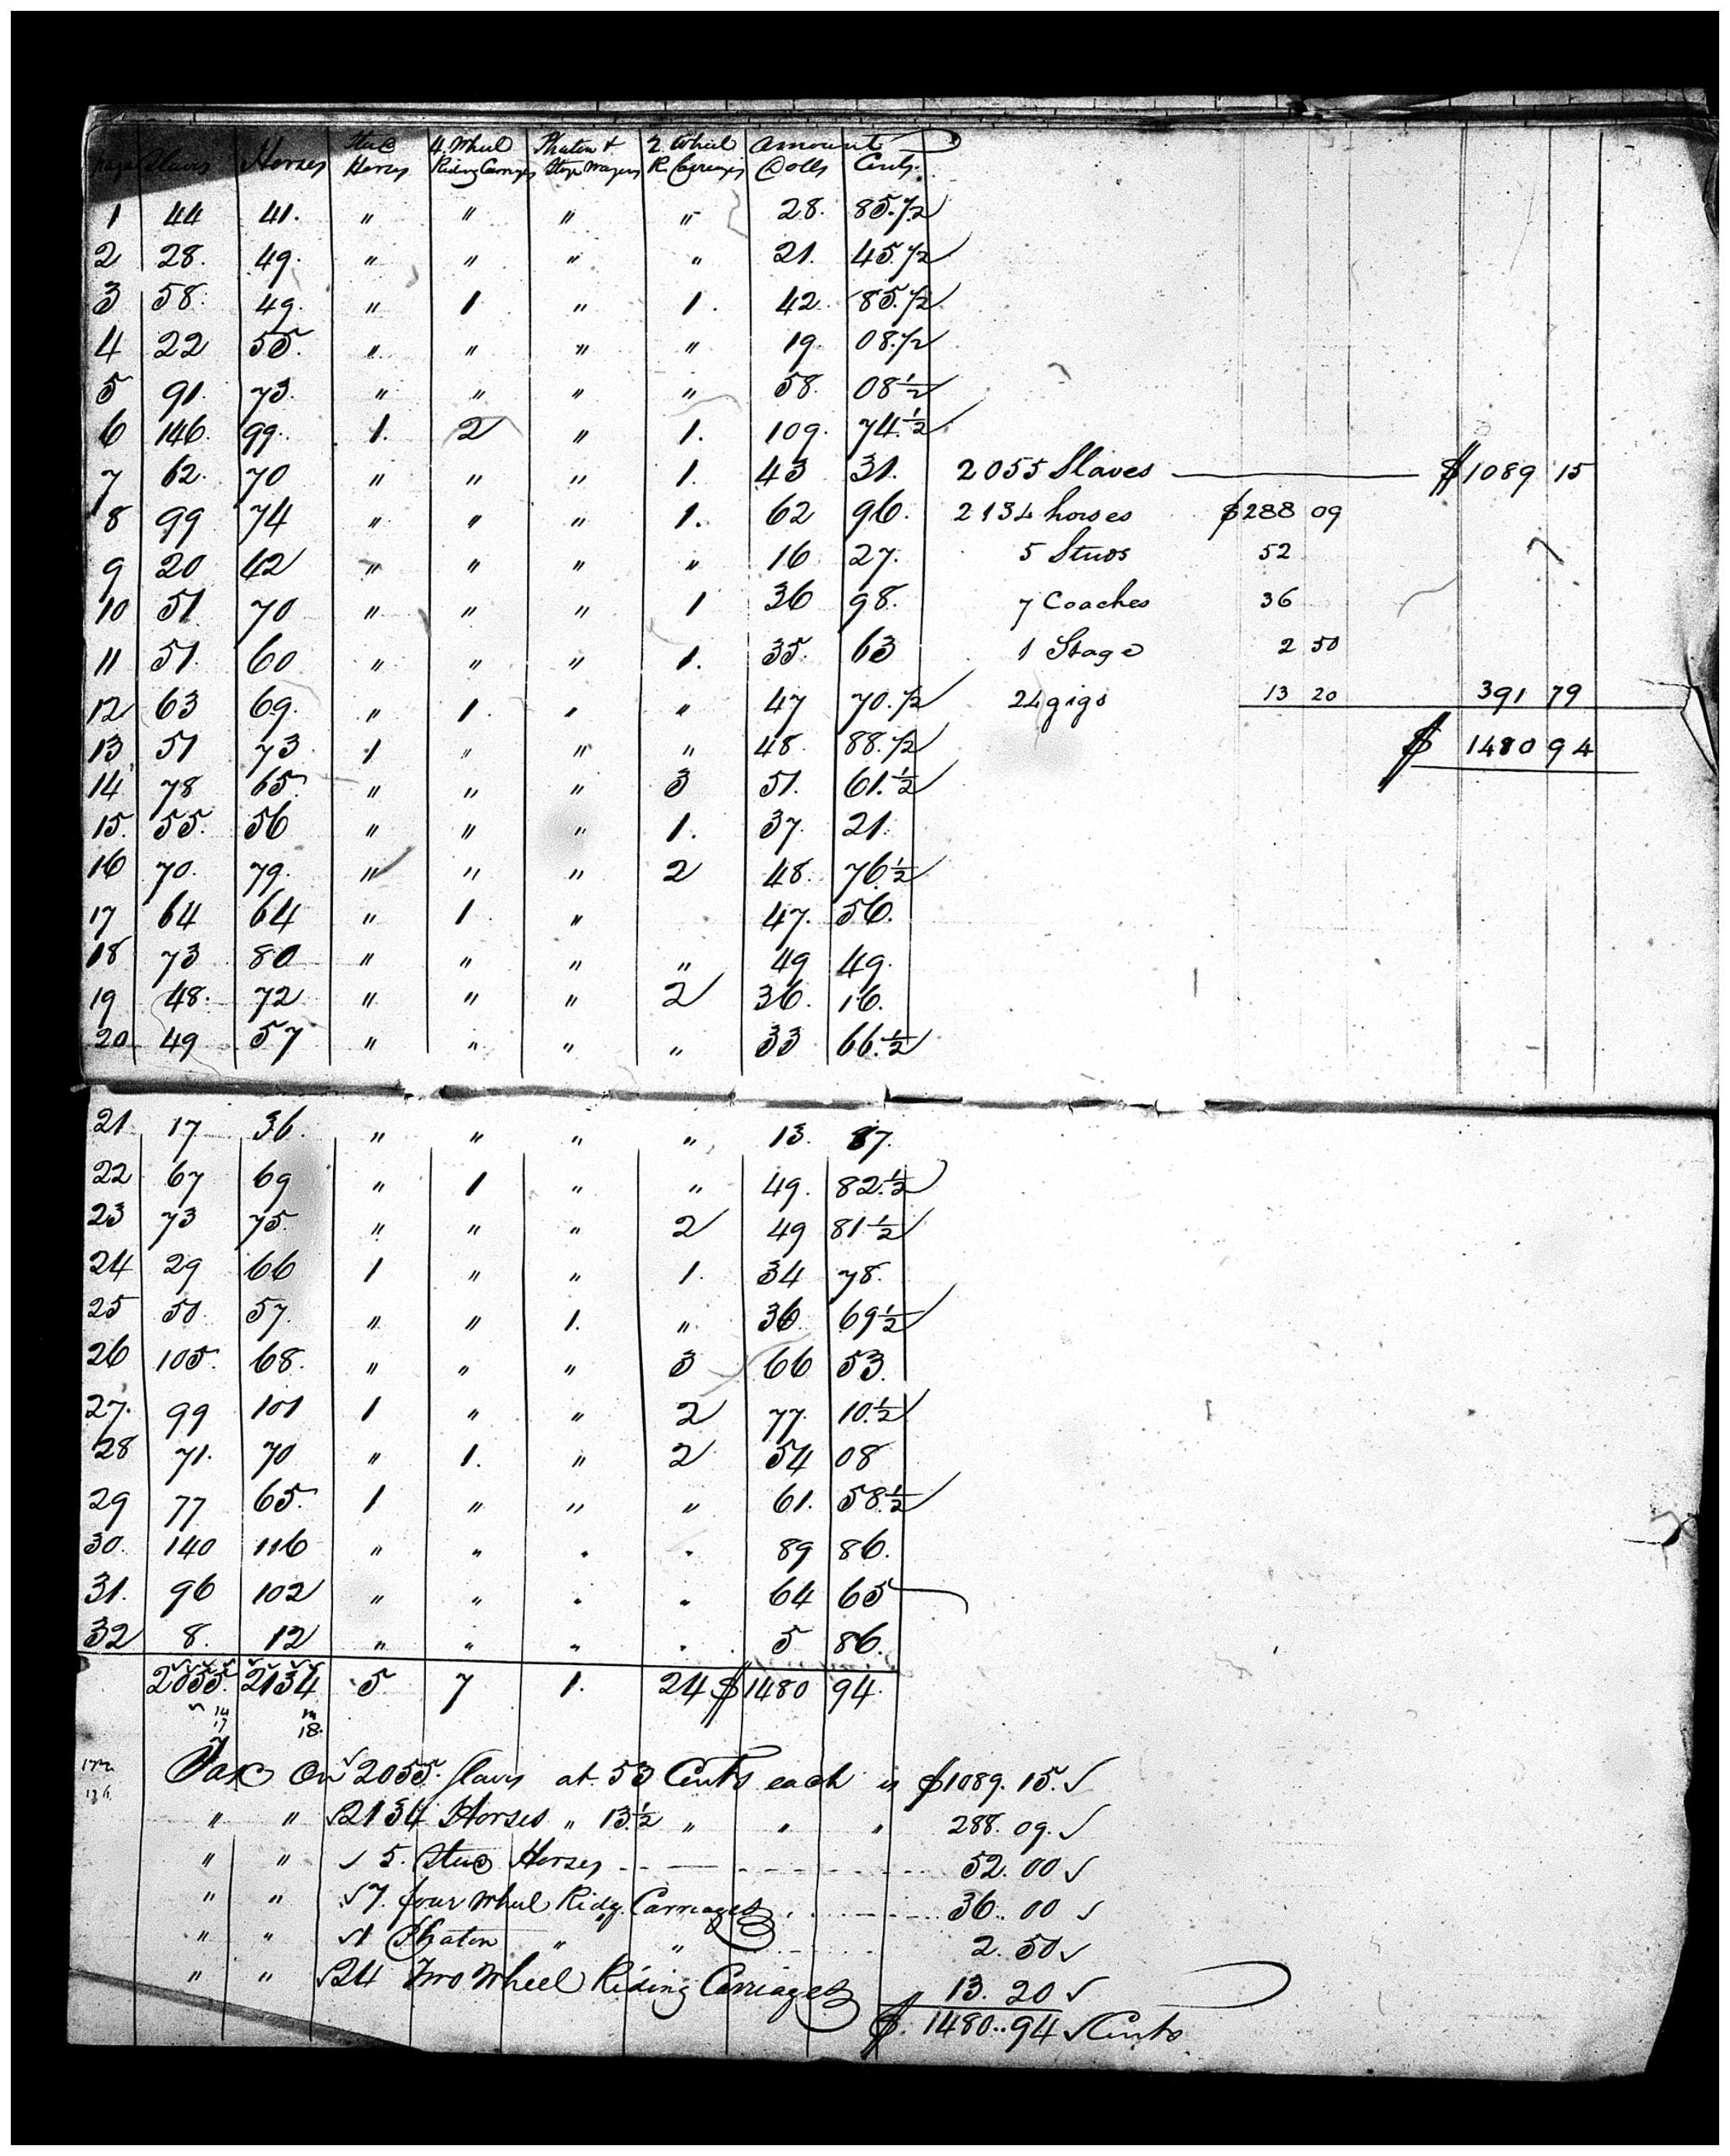 page Slaves Horses Stud Horses 4 Wheel Riding Carriages Phaton & Stage Wagons 2 Wheel R. Carriages Amount Dolls Cents
1 44 41. " " " " 28. 85. 1/2
2 28. 49. " " " " 21. 45. 1/2
3 58. 49. " 1 " 1. 42. 85. 1/2
4 22 55. " " " " 19. 08. 1/2
5 91. 73. " " " " 58. 08 1/2
6 146. 99. 1. 2 " 1. 109. 74. 1/2
7 62. 70 " " " 1. 43 31. 2055 Slaves $1089 15
8 99 74 " " " 1. 62 96. 2134 horses $288 09
9 20 42 " " " " 16 27. 5 Studs 52
10 51. 70 " " " 1 36 98. 7 Coaches 36
11 51. 60 " " " 1. 35. 63 1 Stage 2 50
12 63 69. " 1. " " 47 70. 1/2 24 gigs 13 20 391 79
13 51 73. 1 " " " 48. 88. 1/2 $ 1480 94
14 78 65. " " " 3 51. 61. 1/2
15. 55. 56 " " " 1. 37. 21.
16 70. 79. " " " 2 48. 76. 1/2
17 64 64 " 1. " 47. 56.
18 73 80 " " " " 49 49.
19 48. 72 " " " 2 36. 16.
20 49 57 " " " " 33 66. 1/2
21 17 36. " " " " 13. 87.
22 67 69 " 1 " " 49. 82. 1/2
23 73 75. " " " 2 49 81 1/2
24 29 66 1 " " 1. 34 78.
25 50. 57. " " 1. " 36. 69 1/2
26 105. 68. " " " 3 66 53.
27. 99 101 1 " " 2 77. 10. 1/2
28 71. 70 " 1. " 2 54 08
29 77 65. 1 " " " 61. 58. 1/2
30. 140 116 " " " " 89 86.
31. 96 102 " " " " 64 65
32 8. 12 " " " " 5 86.
2055. 2134 5 7 1. 24 $1480 94.
14
17 18.
Tax on 2055. Slaves at 53 Cents each is $1089. 15.
" " 2134 Horses " 13. 1/2 " " " 288. 09.
" " 5. Stud Horses 52. 00
" " 7. four Wheel Ridg. Carriages 36.. 00
" " 1 Phaton " " 2. 50
" " 24 Two Wheel Riding Carriages 13. 20
$. 1480..94 Cents